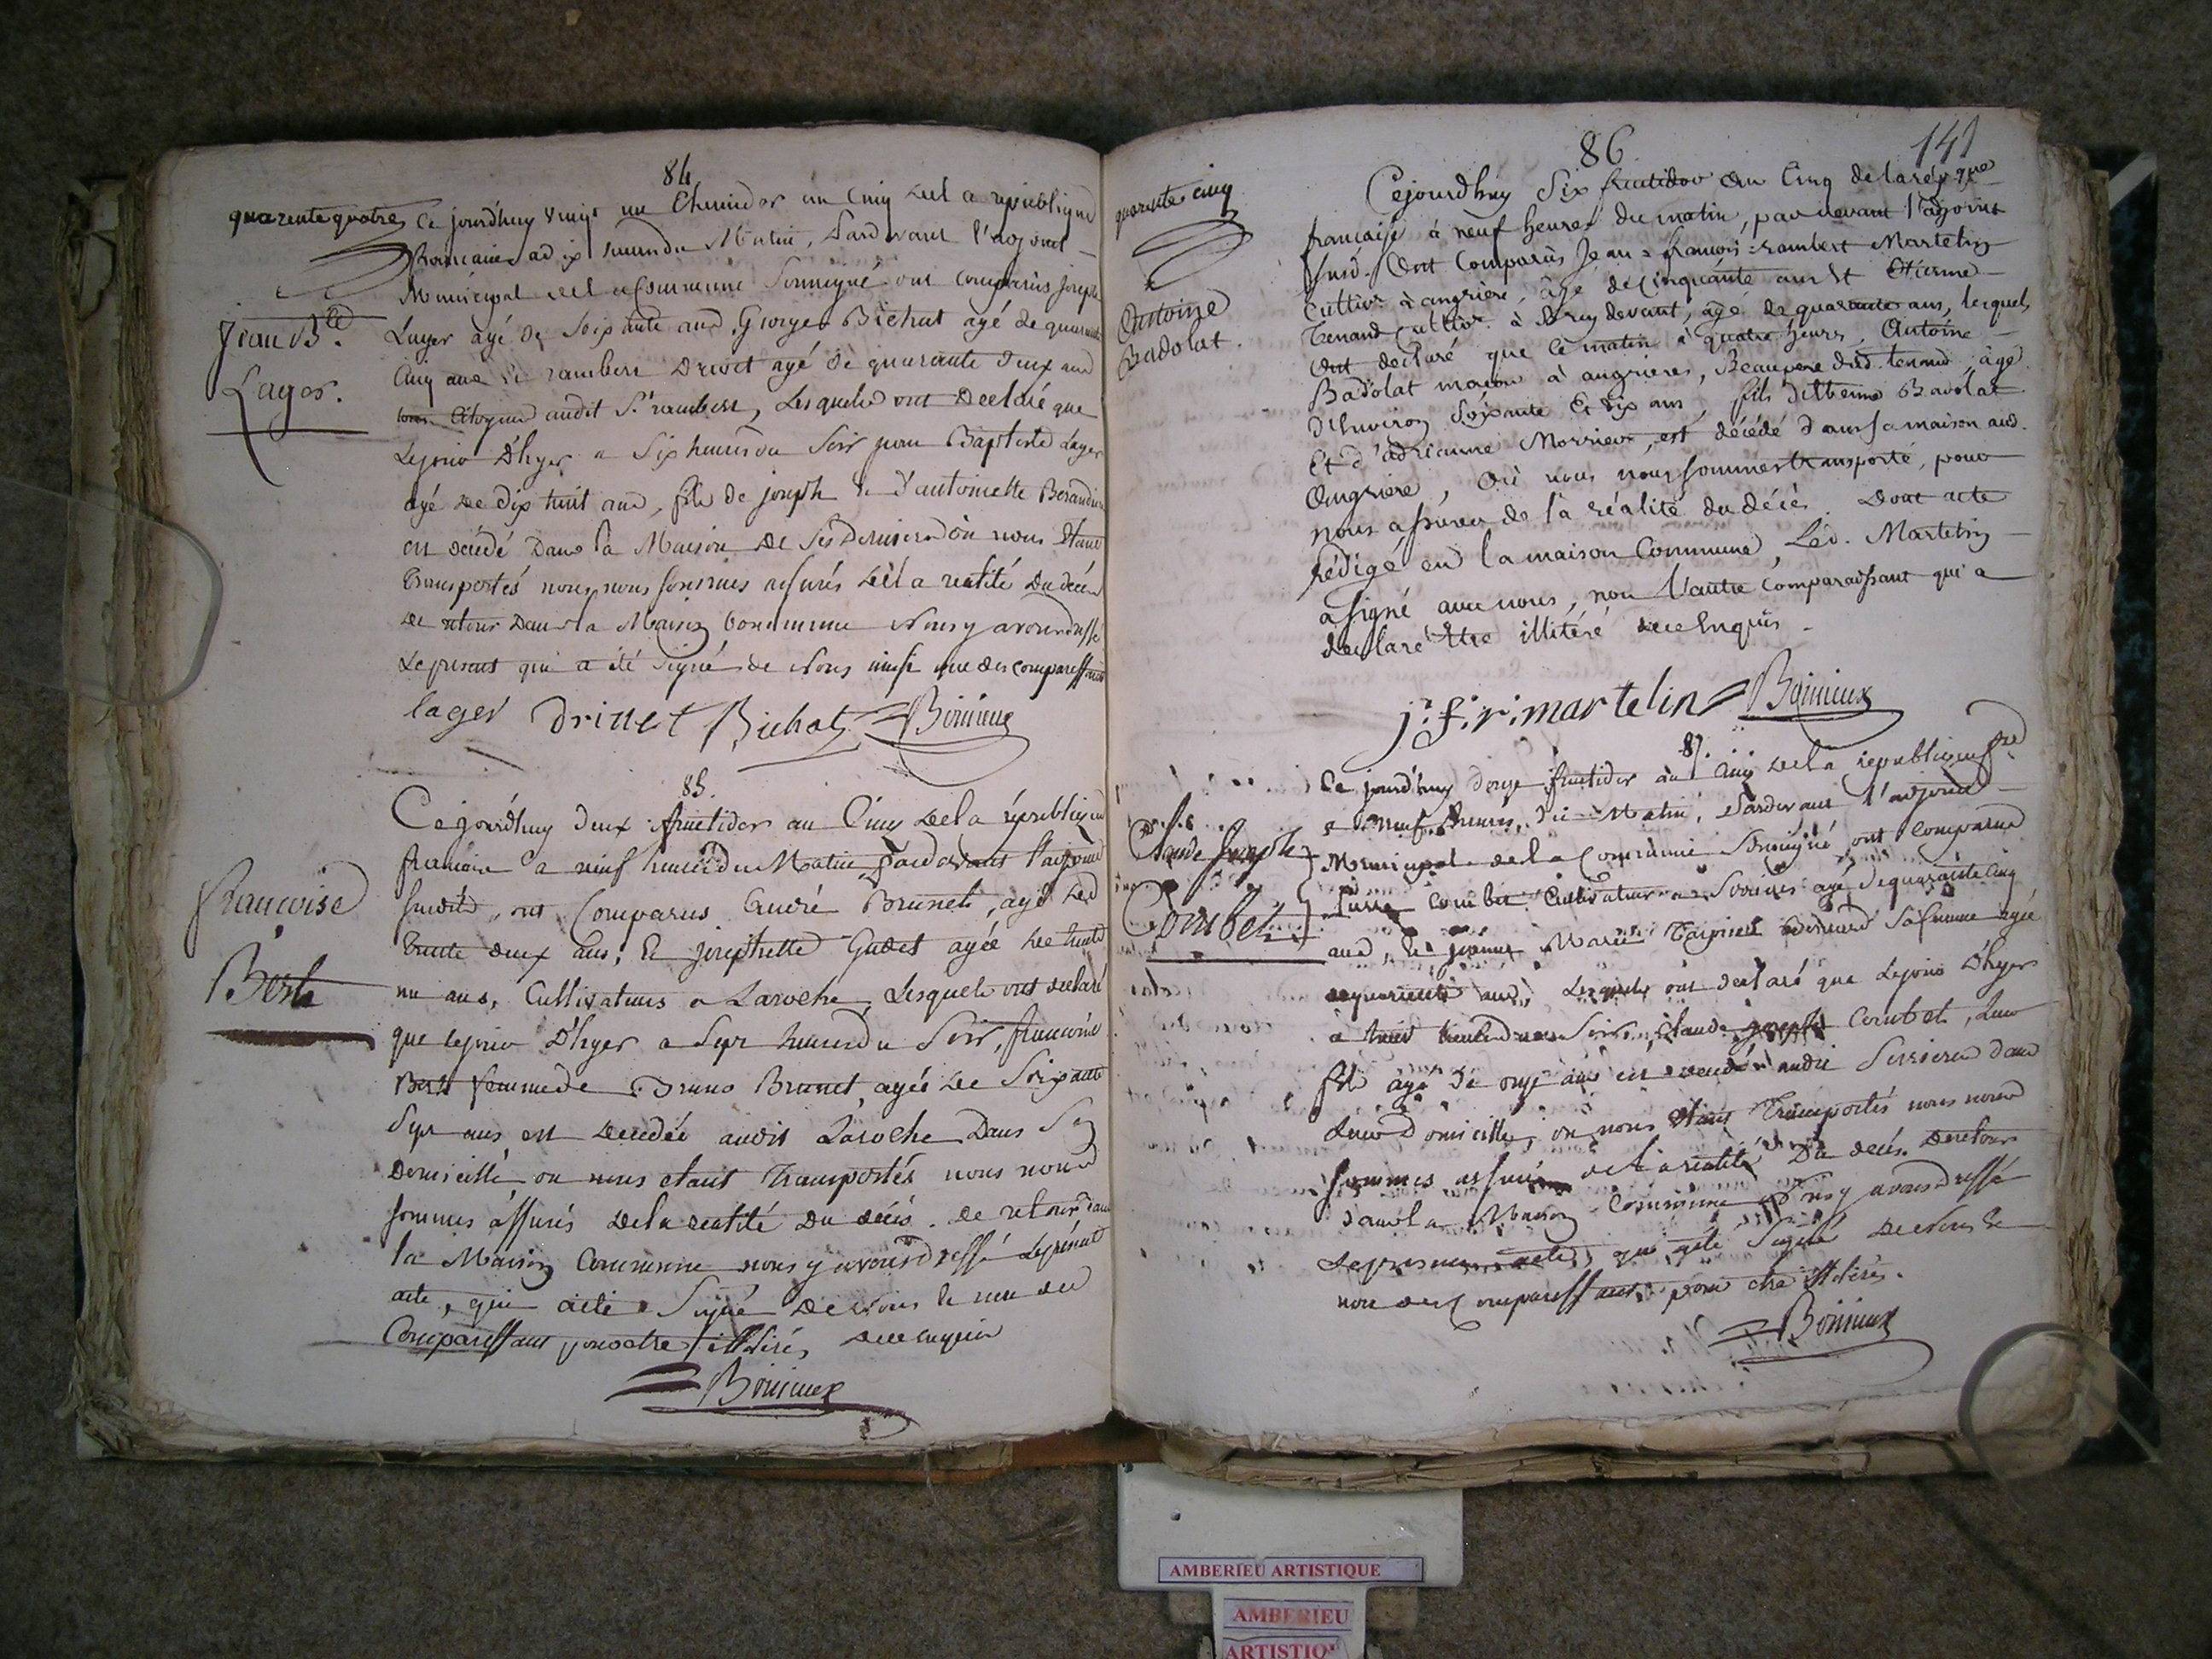 84
quarente quatre
Ce jourd'huy vingt un thermidor an cinq de la republique
francaise a dix heures du Matin, Pardevant l'adjoint
Municipal de la Commune Soussigné ont comparus joseph
Jean B.te
Lager.
Lager agé de Soixante ans George Bichat agé de quarante
Cinq ans et rambert Drivet agé de quarante deux ans
Citoyens audit St. rambert, Lesquels ont Declaré que
Lejour D'hyer a Six heures du Soir jean Baptiste Lager
agé de dix huit ans, fils de joseph et d'antoinette
est décédé Dans la Maison de Ses Derniers où nous Etant
transportés nous nous sommes assurés de la realité du décès
de retour Dans la Maison Commune Nous y avons dressé
Le present qui a été Signé de Nous ainsi que des comparessants
lager Drivet Bichat Bonnieux
85.
Ce jourd'huy deux fructidor an Cinq de la république
francaise a neuf heures du Matin Pardevant l'adjoint
Susdit, ont Comparus André Brunet, agé de
Francoise
Berte
trente deux ans, et josephette Gudet agée de trente
un ans, Cultivateurs a Laroche, Lesquels ont declaré
que lejour D'hyer a Sept heures du Soir, francoise
Bert femme de Bruno Brunet, agée de Soixante
Sept ans est decedée audit Laroche Dans Son
domicille ou nous etant Transportés nous nous
sommes assurés de la realité du décès. de retour dans
la Maison Commune nous y avons dressé Le présent
acte, qui a été Signé de Nous et non des
Comparessant pour etre illitérés de ce enquis
Bonnieux
86. 141
quarente cinq
Cejourdhuy Six fructidor an Cinq de la rép.que
francaise à neuf heures du matin, par devant l'adjoint
susd. Ont Comparus Jean = francois = rambert Martelin
Antoine
Badolat.
Cultiv.r à angriere, âgé de Cinquante ans Et Etienne
Tenand Cultiv.r à Brey devant, âgé de quarante ans, lesquels
ont declaré que ce matin à quatre heures, Antoine
Badolat maçon à angrieres, Beaupere dud. tenand, âgé
D'Environ Soixante Et Dix ans, fils d'Etienne Badolat
Et d'adrianne Morrier, est décédé dans sa maison aud.
Angriere, où nous nous sommes transporté, pour
nous assurer de la réalité du décès. Dont acte
rédigé en la maison Commune, Led. Martelin
a signé avec nous, non l'autre Comparaissant qui a
declaré Etre illitéré de ce Enquis.
j: f: r: martelin Bonnieux
87.
Ce jourd'huy douze fructidor an Cinq de la republique fse
a neuf heures du Matin, Pardevant l'adjoint
Claude Joseph
Combet
Municipal de la Commune Soussigné, ont comparus
Pierre Combet Cultivateur a Serrieres agé de quarante Cinq
ans, et jeanne Marie Bernard Sa femme agée
de quarente ans, Lesquels ont declaré que Lejour D'hyer
a huit heures du Soir, Claude joseph Combet, Leur
fils âgé de onze ans est décédé audit Serrieres dans
Leur Domicille, ou nous étant Transportés nous nous
sommes assurés de la realité du decés. de retour
dans la Maison Commune nous y avons dressé
Le present acte, qui a été Signé de Nous et
non des Comparessant, pour etre illitérés.
Bonnieux
AMBERIEU ARTISTIQUE
AMBERIEU
ARTISTIQ